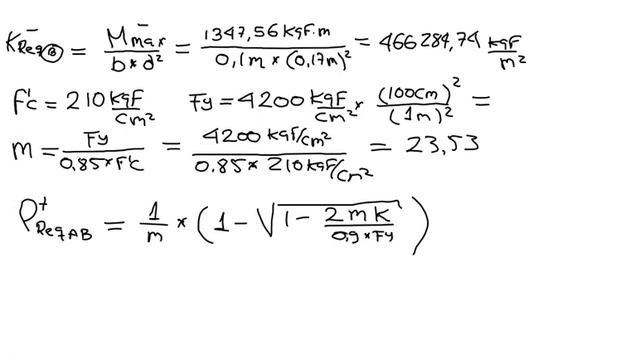 K⁻Req(B) = M⁻max / b*d² = 1347,56 KgF.m / 0,1m × (0,17m)² = 466284,74 KgF/m²
F'c = 210 KgF/cm²   Fy = 4200 KgF/cm² × (100cm)²/(1m)² =
m = Fy / 0.85*F'c = 4200 KgF/cm² / 0.85* 210 KgF/cm² = 23,53
ρ⁺ReqAB = 1/m * (1 - √(1 - 2mK / 0,9*Fy))